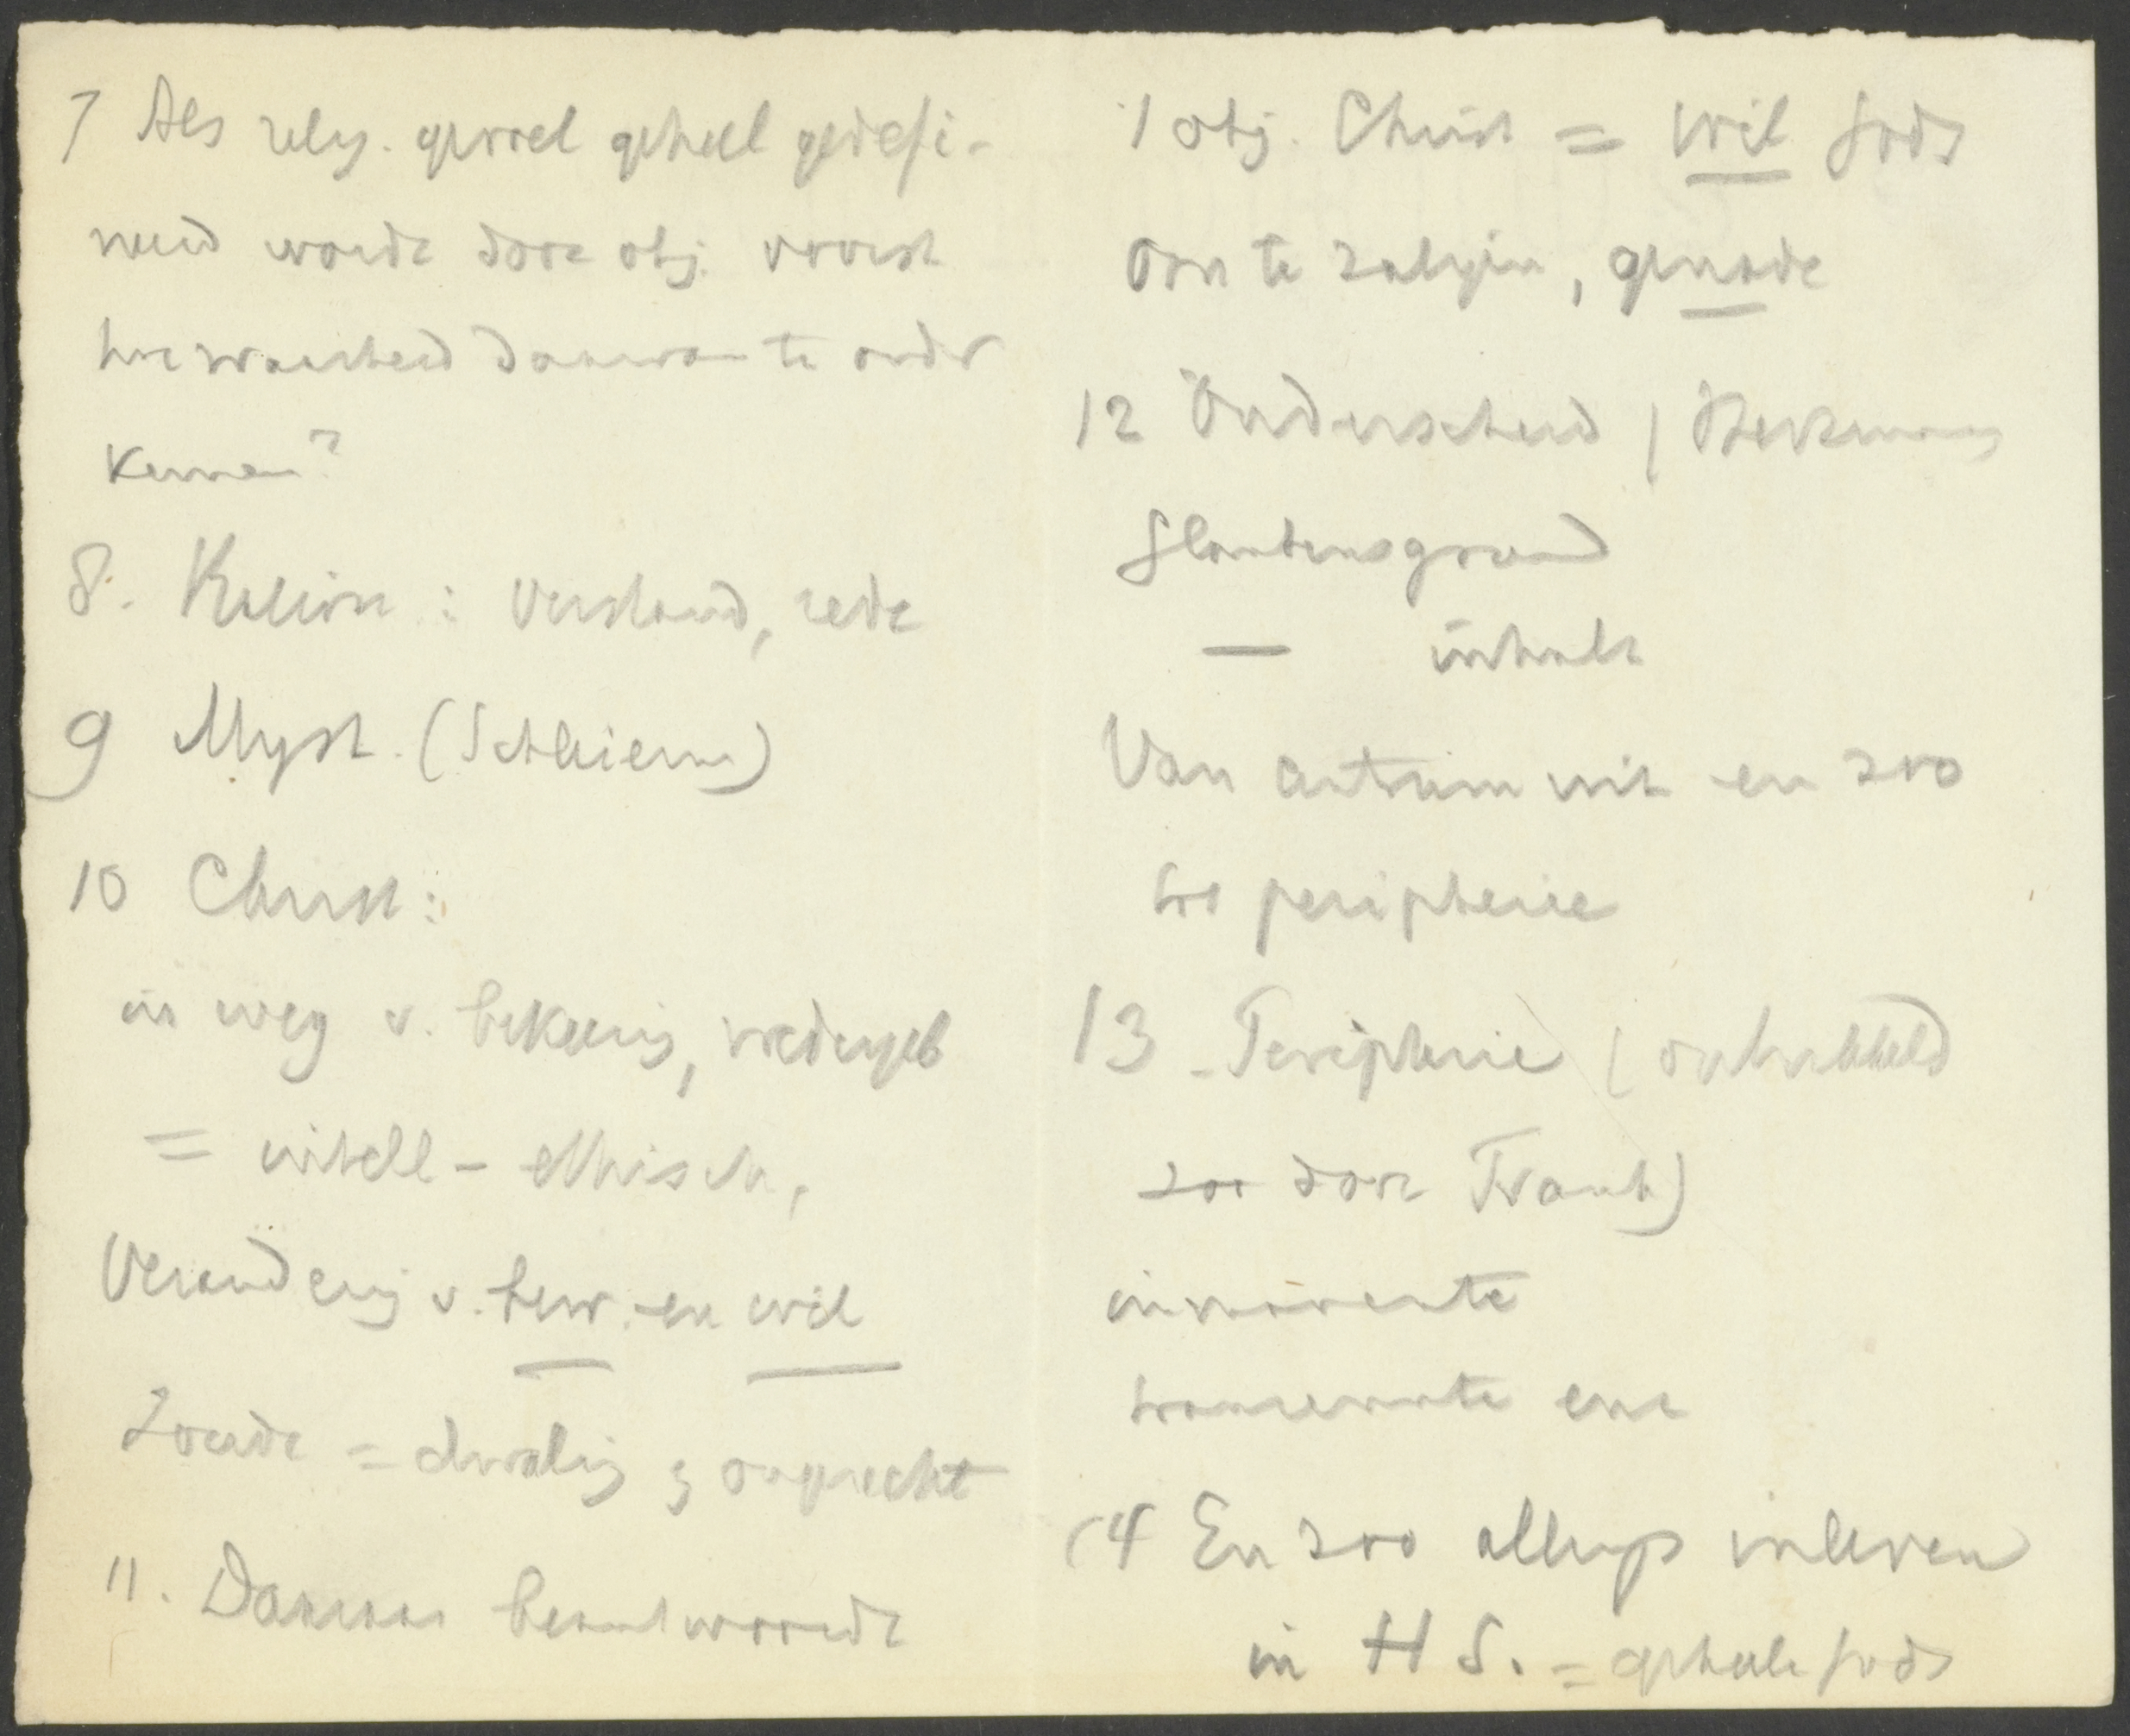 7 Als relig. gevoel geheel gedefi-
neerd wordt door obj. voorst
hoe waarheid daarvan te onder
kennen?
8. Ration : verstand, rede
9 Myst. (Schleierm)
10 Christ:
in weg v. bekeering, wedergeb
= intell - ethisch,
Verandering v. bew. en wil
Zonde = dwaling & ongerecht
11. Daaraan beantwoordt
't obj. Christ = wil Gods
om te zaligen, genade
12 Onderscheid
Glaubensgrund
— inhalt
Van centrum uit en zoo
tot peripherie
13 Peripherie ( ontwikkeld
door Frank)
immanente
transeunte enz
14 En zoo allengs inleven
in H S. = geheele Gods